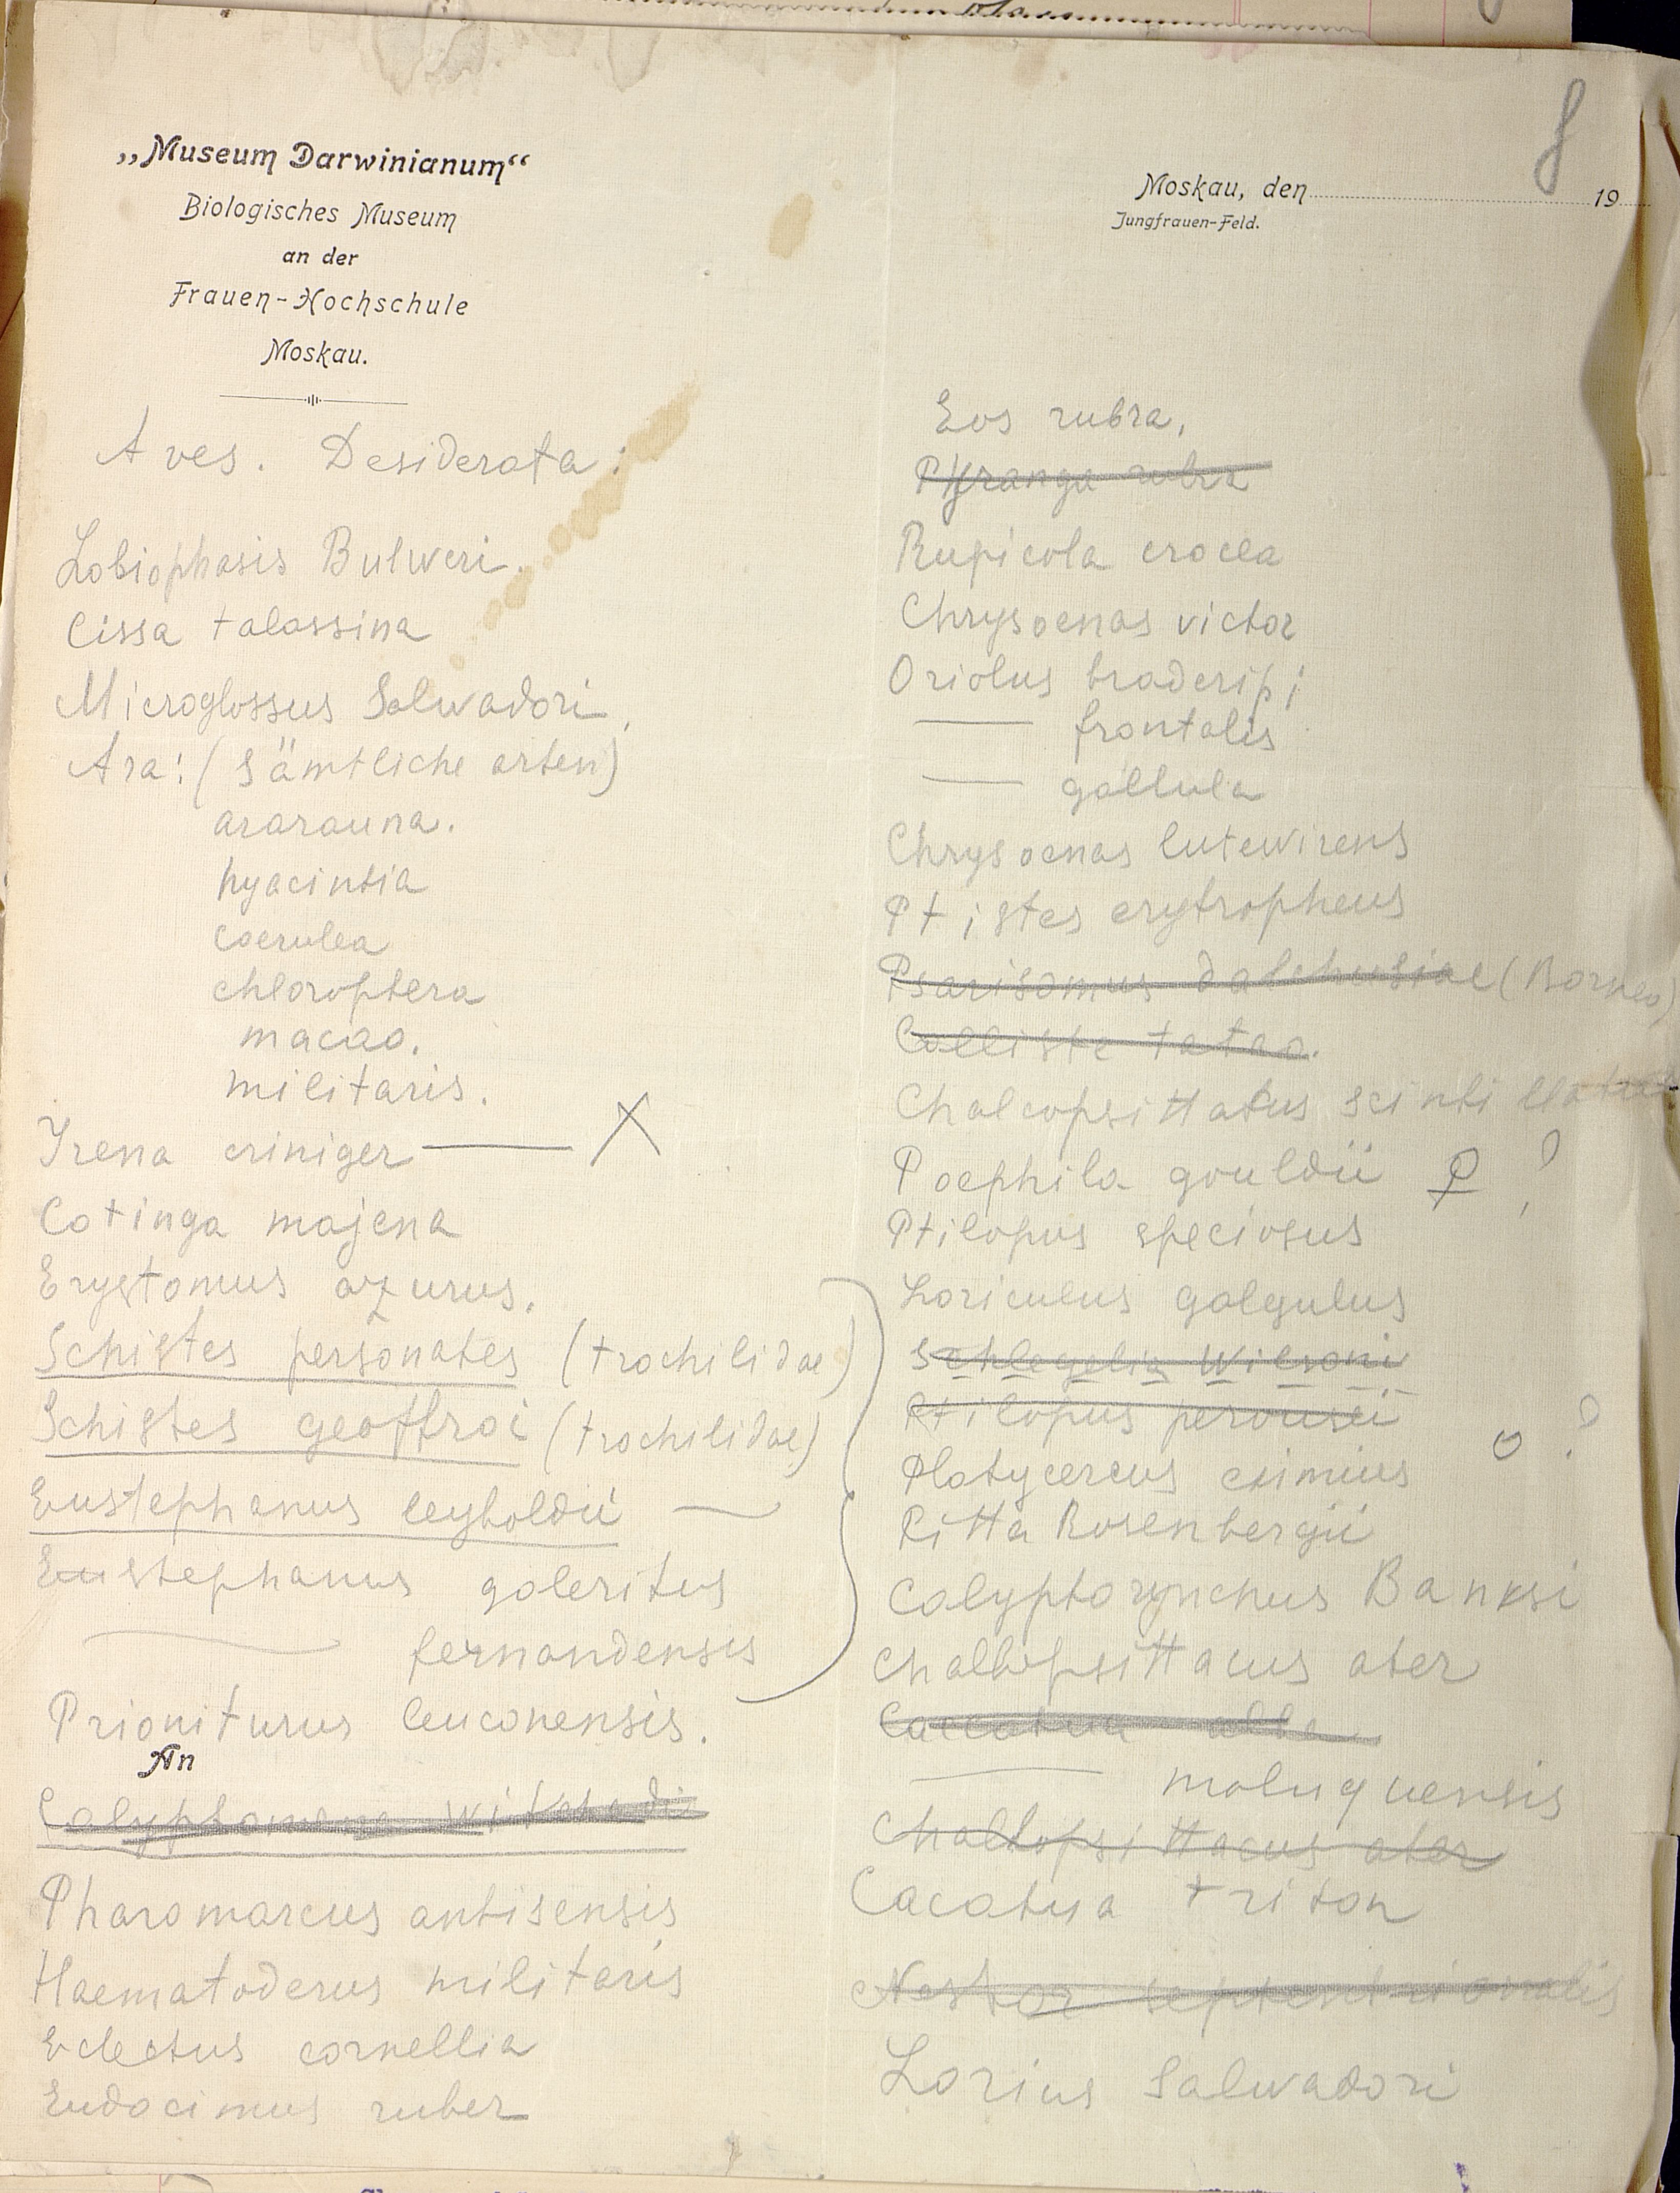 8
„Museum Darwinianum“
Biologisches Museum
an der
Frauen-Hochschule
Moskau.
Moskau, den 19
Jungfrauen-Feld.
Aves. Desiderata:
Lobiophasis Bulweri.
Cissa talassina
Microglossus Salwadori,
Ara! (sämtliche arten)
ararauna.
hyacintia
coerulea
chloroptera
macao.
militaris.
Irena criniger — X
Cotinga majena
Erystomus azurus.
Schistes personates (trochilidae)
Schistes geoffroi (trochilidae)
Eustephanus leyboldii —
Eustephanus galeritus
— fernandensis
Prioniturus leuconensis.
An
Calyptomena witeheadi
Pharomarcus antisensis
Haematoderus militaris
Eclectus cornellia
Eudocimus ruber
Eos rubra,
Pyranga rubra
Rupicola crocea
Chrysoenas victor
Oriolus braderipi
— frontalis
— gallula
Chrysoenas lutewirens
Ptistes erytropheus
Psarisomus dalehusiae (Borneo)
Calliste tatao.
Chalcopsittatus scintillatus
Poephila gouldii ♀ ?
Ptilopus speciosus
Loriculus galgulus
Schlegelia Wilsoni
Ptilopus perousii
o ?
Platycercus eximius
Pitta Rosenbergii
Calyptorynchus Banksi
Chalkopsittacus ater
Caccatua alba
— moluquensis
Chalkopsittacus ater
Cacatua triton
Nestor septentrionalis
Lorius Salwadori